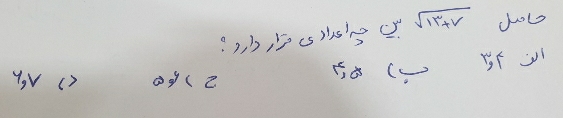 حاصل √۱۳+۷ بین چه اعدادی قرار دارد؟
الف ۳و۴ ب) ۴و۵ ج) ۵و۶ د) ۶و۷